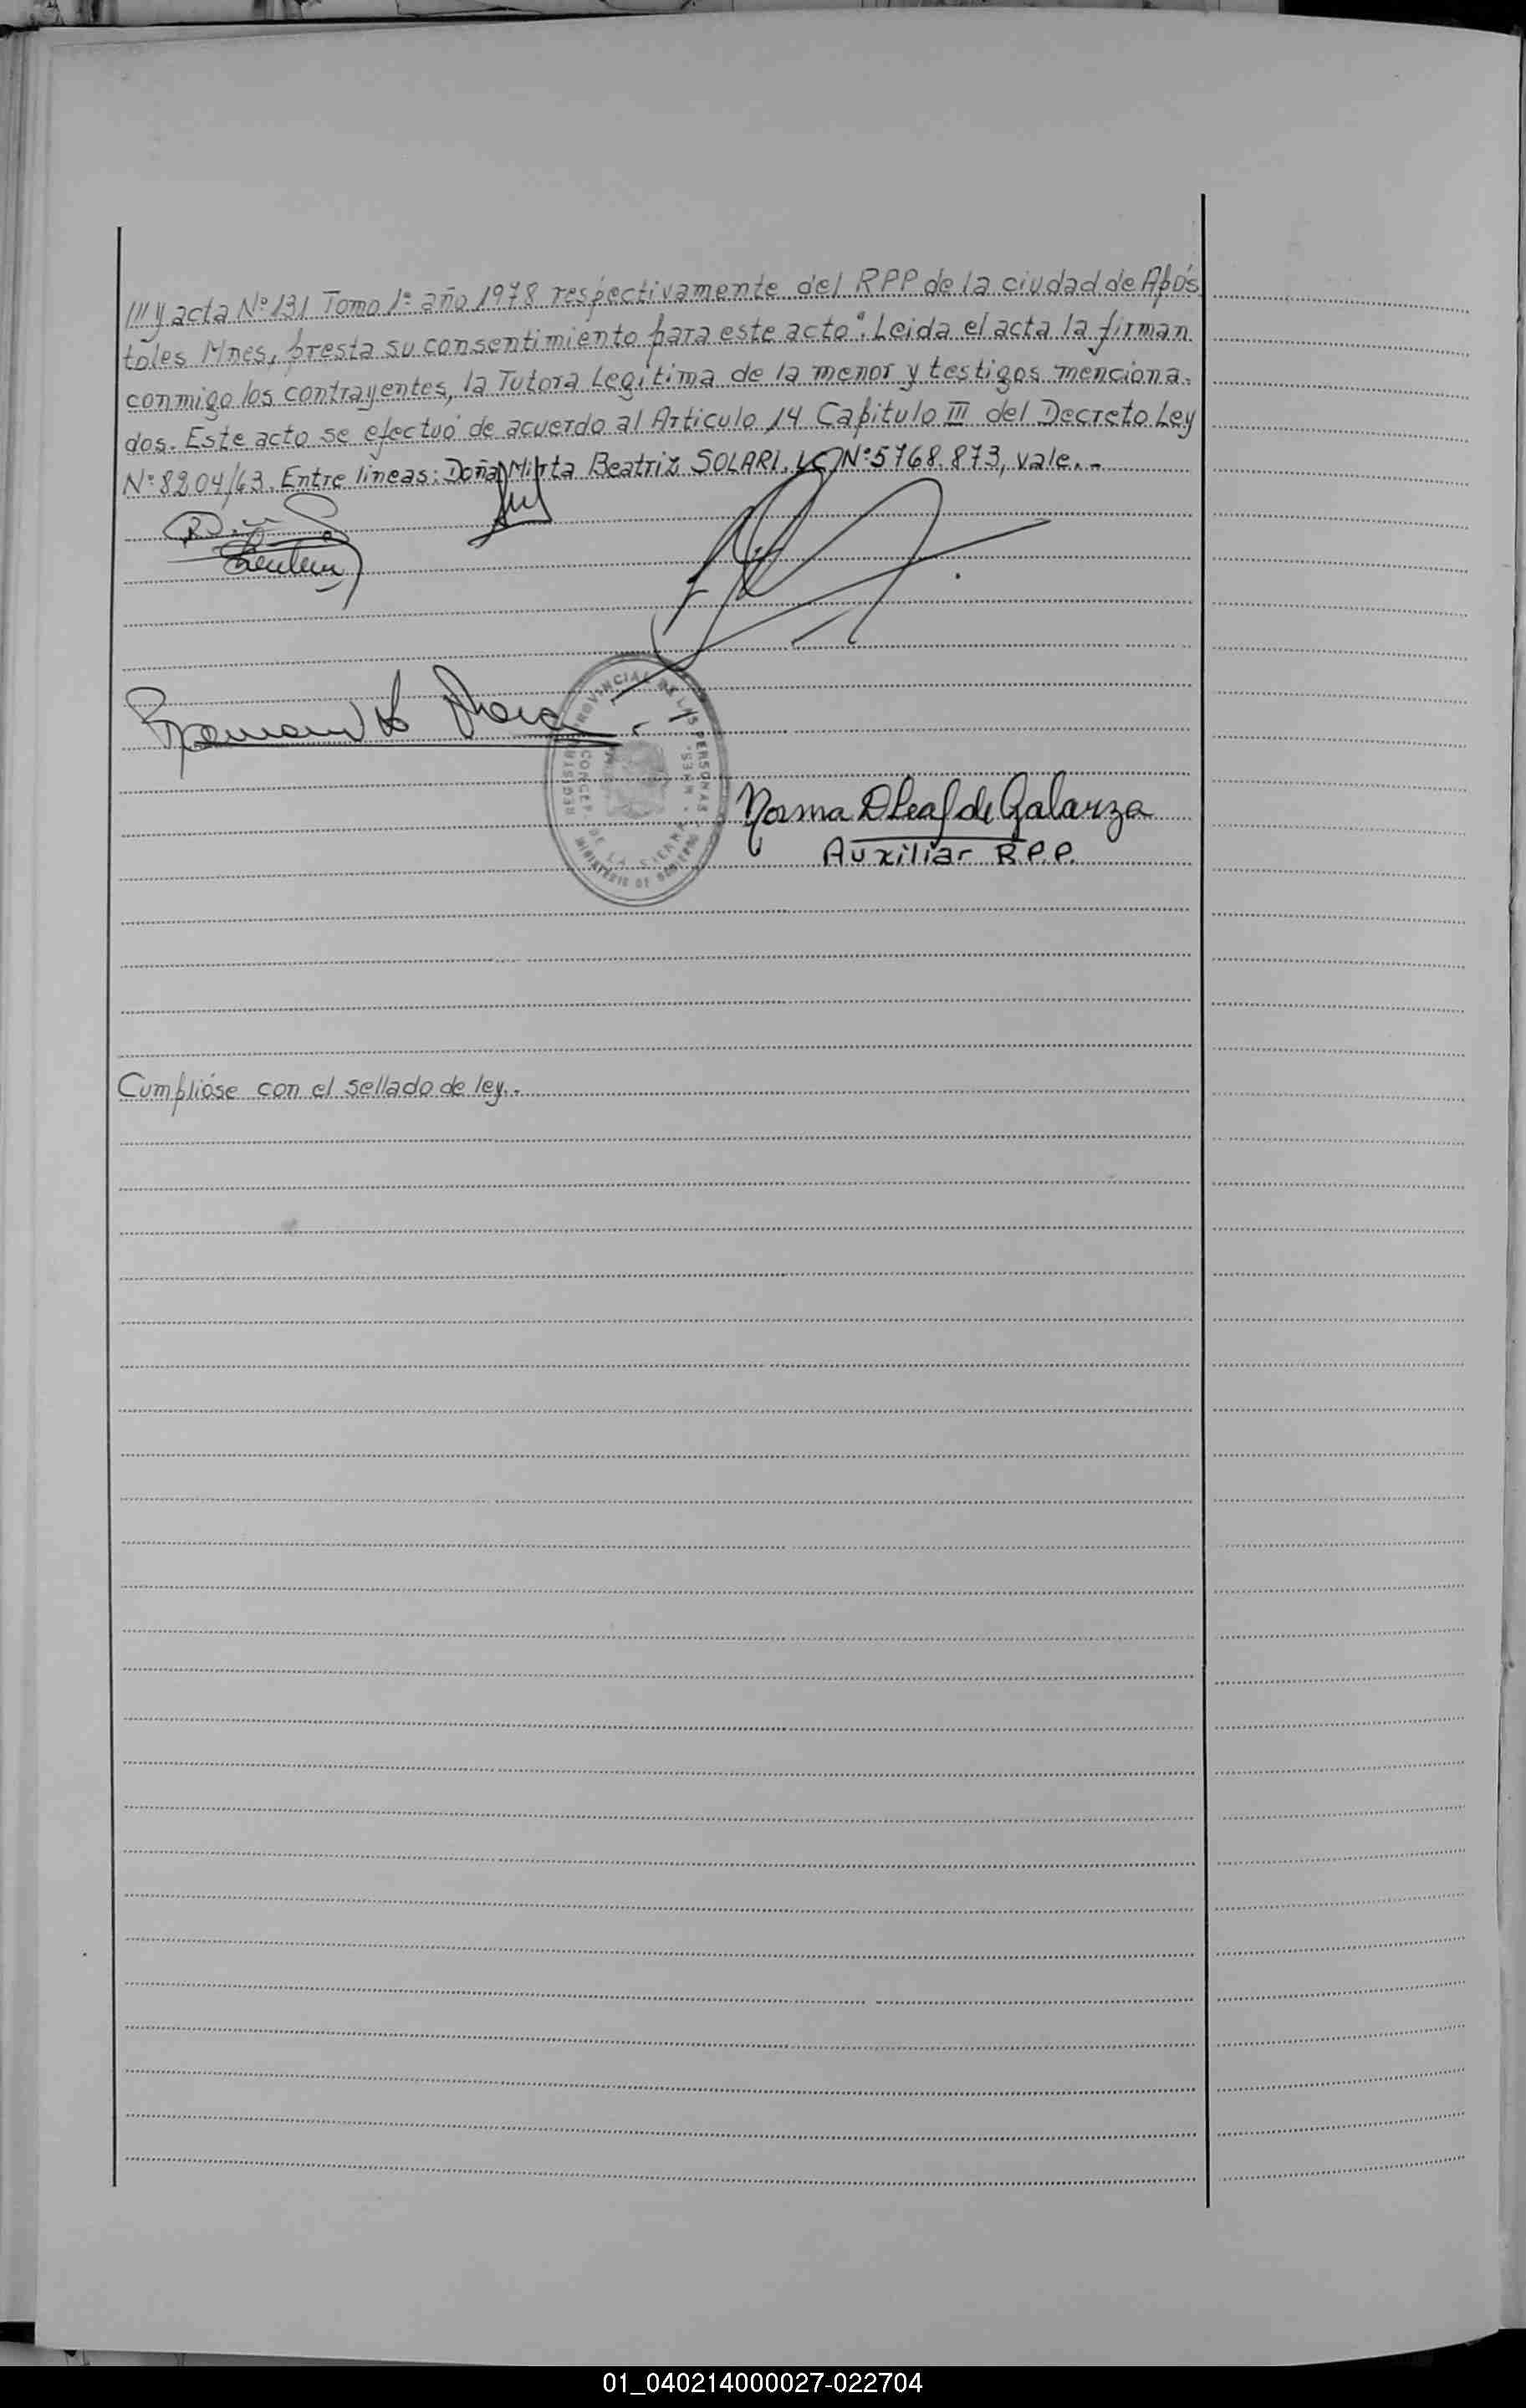 /// y acta Nº 131 Tomo 1º año 1978 respectivamente del RPP de la ciudad de Após
toles Mnes, presta su consentimiento para este acto". Leida el acta la firman
conmigo los contrayentes, la Tutora Legitima de la menor y testigos menciona-
dos. Este acto se efectuó de acuerdo al Articulo 14 Capitulo III del Decreto Ley
Nº 8204/63. Entre lineas: Doña Mirta Beatriz SOLARI, LC Nº 5768.873, vale.-
REGISTRO PROVINCIAL DE LAS PERSONAS
CONCEP. DE LA SIERRA - MNES.
MINISTERIO DE GOBIERNO
Norma D Leal de Galarza
Auxiliar R.P.P.
Cumplióse con el sellado de ley.-
01_040214000027-022704